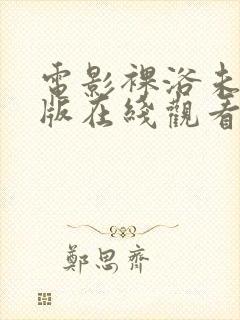 電影裸浴未
版在綫觀看
鄭思齊